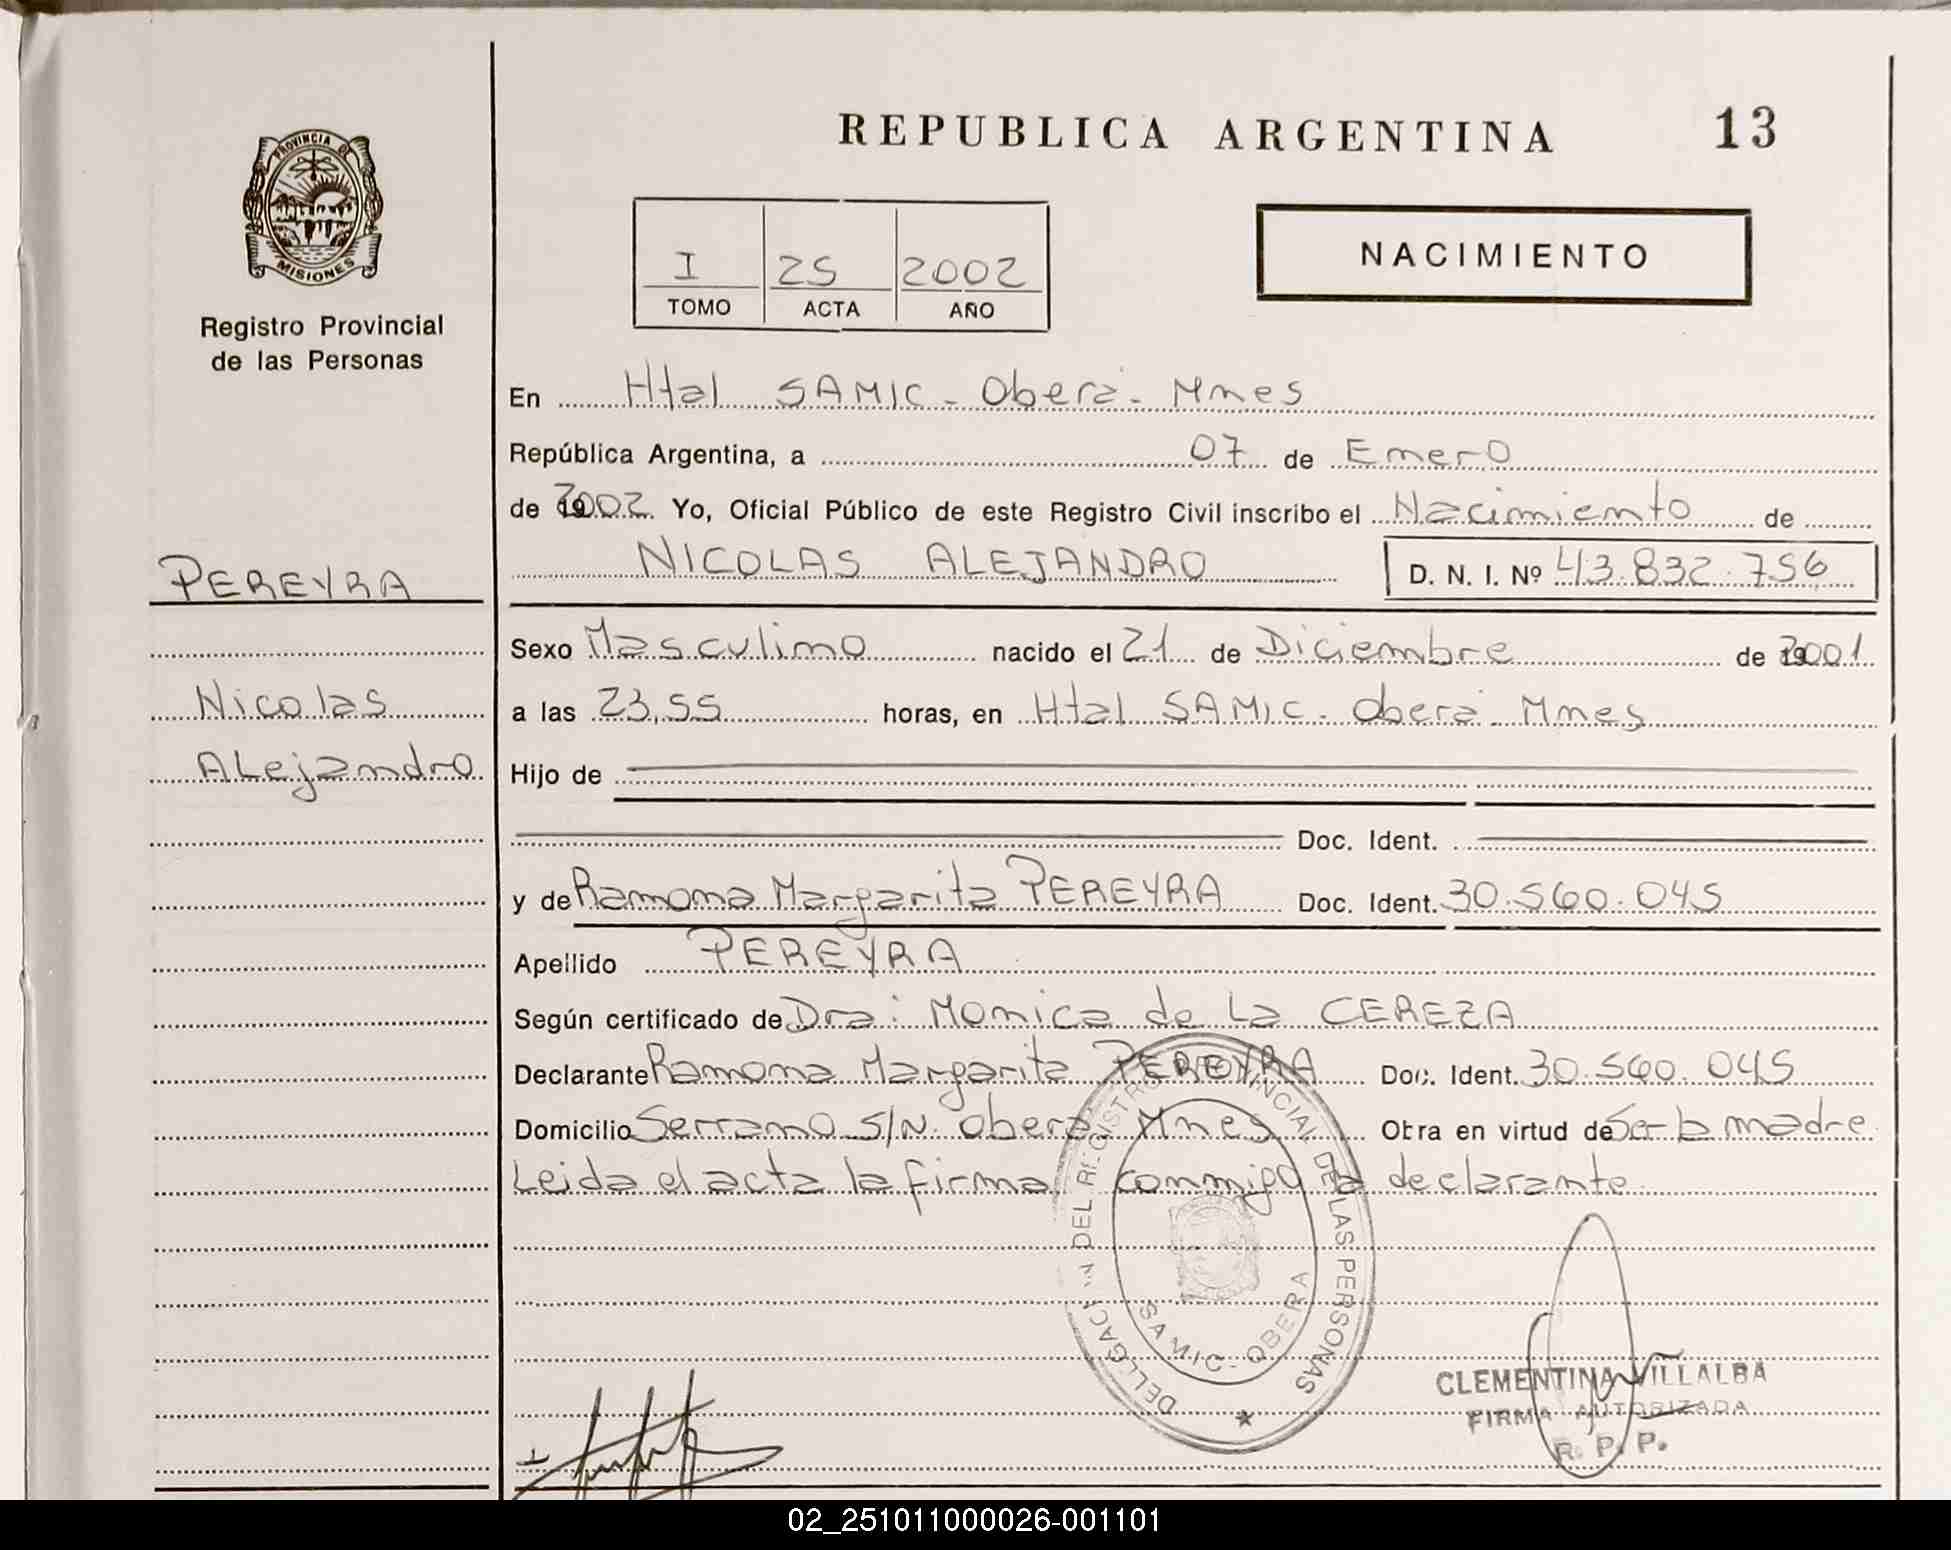 REPUBLICA ARGENTINA 13
PROVINCIA DE
MISIONES
Registro Provincial
de las Personas
I 25 2002
TOMO ACTA AÑO
NACIMIENTO
En Htal SAMIC - Oberá - Mnes
República Argentina, a 07 de Enero
de 2002 Yo, Oficial Público de este Registro Civil inscribo el Nacimiento de
NICOLAS ALEJANDRO D. N. I. Nº 43.832.756
PEREYRA
Nicolas
Alejandro
Sexo Masculino nacido el 21 de Diciembre de 2001
a las 23,55 horas, en Htal SAMIC - Oberá - Mnes
Hijo de
Doc. Ident.
y de Ramona Margarita PEREYRA Doc. Ident. 30.560.045
Apellido PEREYRA
Según certificado de Dra: Monica de La CEREZA
Declarante Ramona Margarita PEREYRA Doc. Ident. 30.560.045
Domicilio Serrano S/N. Oberá Mnes Obra en virtud de Ser la madre
Leida el acta la firma conmigo la declarante
DELEGACION DEL REGISTRO PROVINCIAL DE LAS PERSONAS
SAMIC - OBERA
CLEMENTINA VILLALBA
FIRMA AUTORIZADA
R. P. P.
02_251011000026-001101